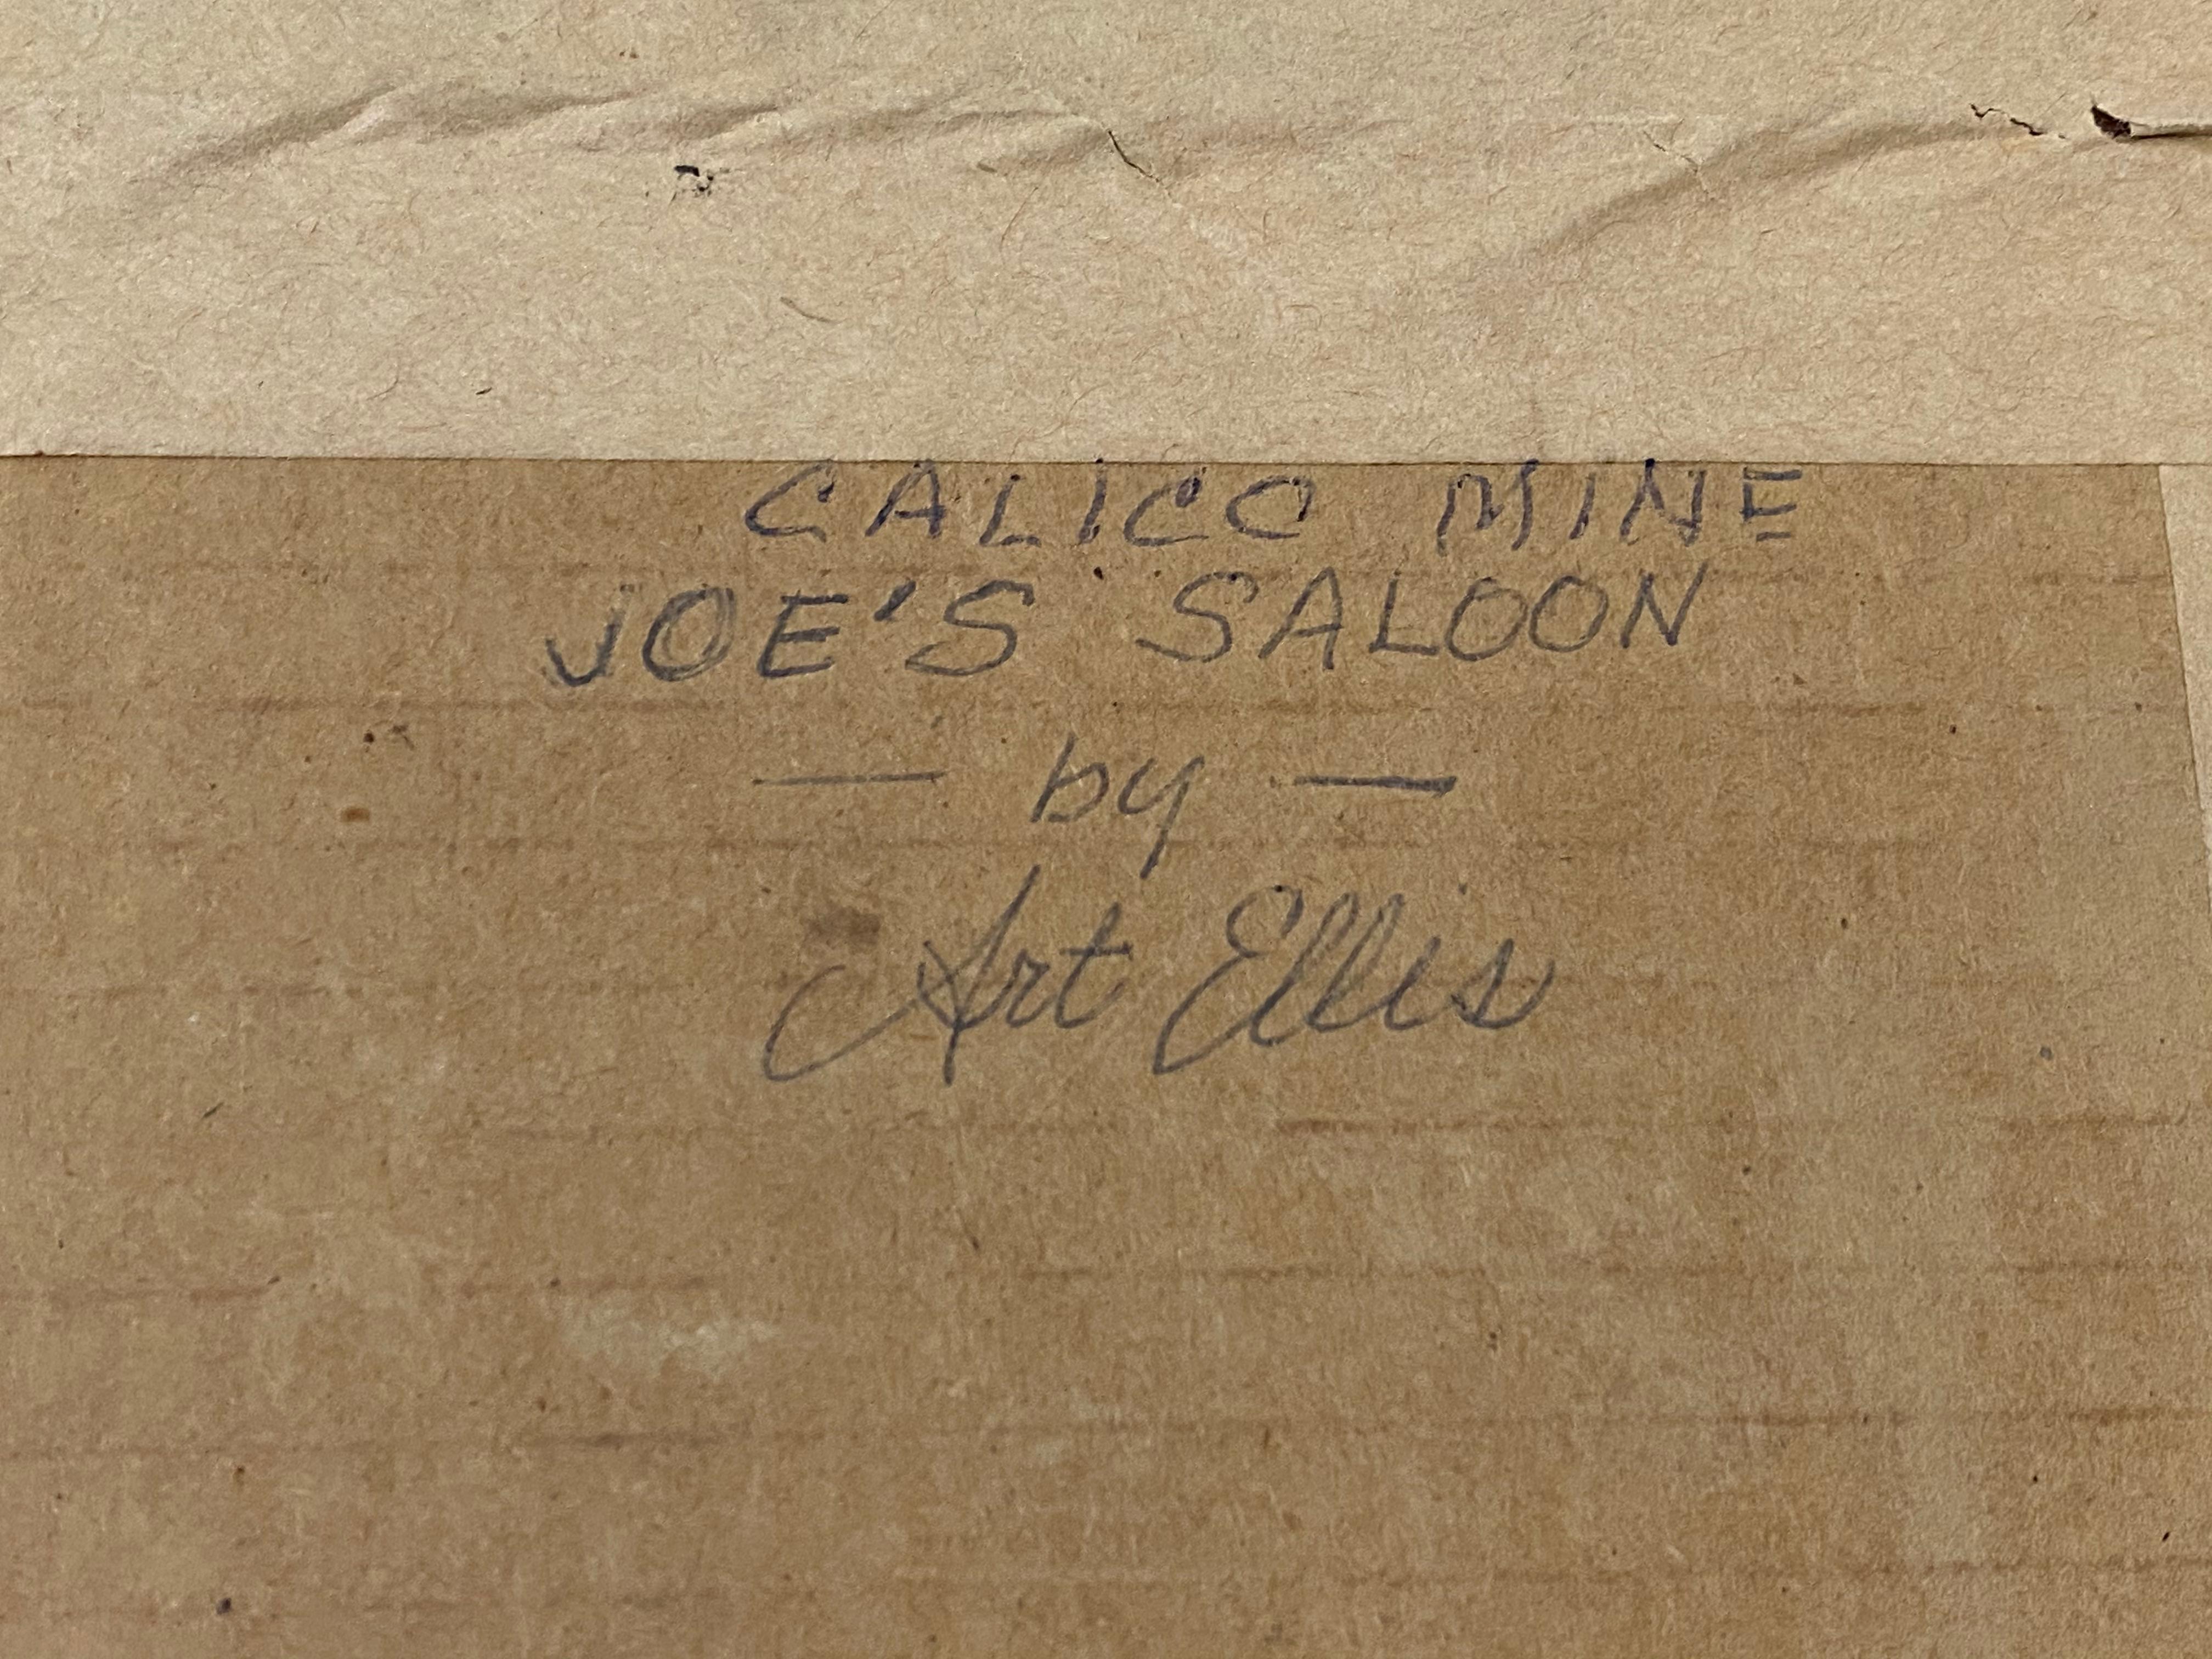 CALICO MINE
JOE'S SALOON
— by —
Art Ellis